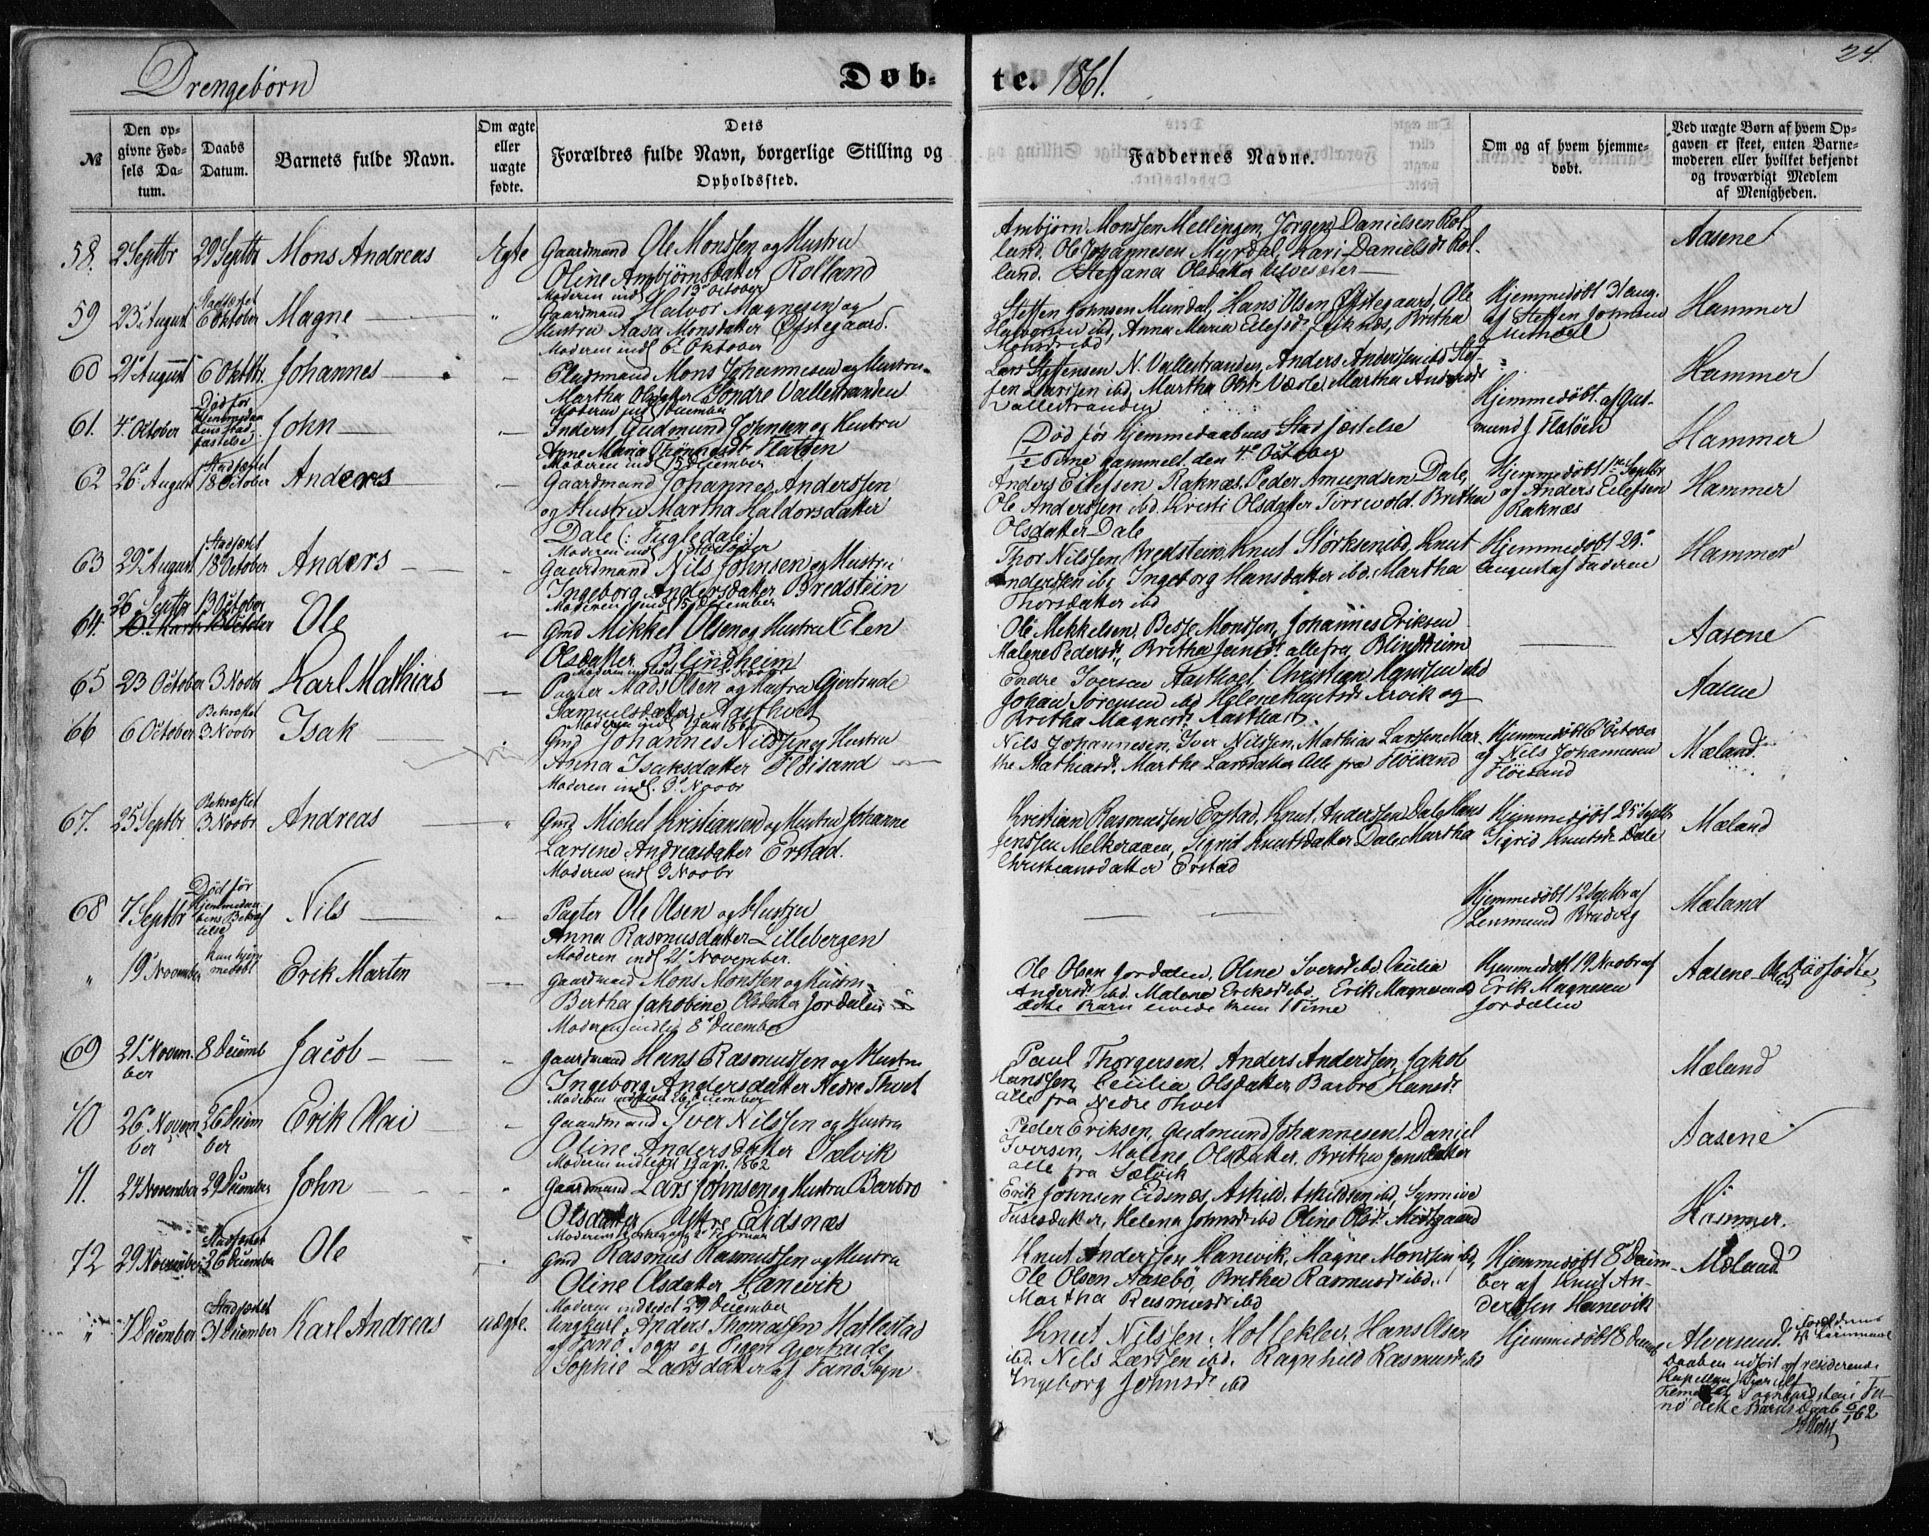 24.
Drengebørn
Døb-te. 1861.
№
Den op-
givne Fød-
sels Da-
tum.
Daabs
Datum.
Barnets fulde Navn.
Om ægte
eller
uægte
fødte.
Dets
Forældres fulde Navn, borgerlige Stilling og
Opholdssted.
Faddernes Navne.
Om og af hvem hjemme-
døbt.
Ved uægte Børn af hvem Op-
gaven er skeet, enten Barne-
moderen eller hvilket bekjendt
og troværdigt Medlem
af Menigheden.
58. 2 Septbr 29 Septbr Mons Andreas Ægte
Gaardmand Ole Monssen og Hustru
Oline Ambjørnsdatter Rolland
Moderen indl 13 October
Ambjørn Monssen Mellingen, Jørgen Danielsen Rol-
land, Ole Johannesen Myrdal, Kari Danielsdr Rol-
land. Steffana Olsdatter
Aasene
59 23 August Stadfæstet 6 October Magne "
Gaardmand Halvor Magnesen og
Hustru Aasa Monsdatter Øfstegaard.
Moderen indl 6 October
Steffen Johnsen Mundal, Hans Olsen Øfstegaard, Ole
Halvorsen ibd, Anna Maria Eilefsdr Leiknes, Britha
Monsdr ibd
Hjemmedøbt 31 Aug.
af Steffen Johnsen
Mundal
Hammer
60 21 August 6 Oktbr. Johannes
Pladsmand Mons Johannesen og Hustru
Martha Olsdatter Søndre Vallestranden
Moderen indl December
Lars Steffensen N. Vallestranden, Anders Anderssen ibd Stef-
fen Larssen ibd, Martha Olsdr Væle, Martha Andersdr
Vallestranden
Hammer
61. 4 October Død før Hjemmedaa bens Stad fæstelse John
Inderst Gudmund Johnsen og Hustru
Anne Maria Thønnesdr Flatøen
Moderen indl 15 December
Død før Hjemmedaabens Stadfæstelse
1/2 Time gammelt den 4 October
Hjemmedøbt af Gud-
mund J Flatøen
Hammer
62 26 August Stadfæstet 18 October Anders
Gaardmand Johannes Anderssen
og Hustru Martha Haldorsdatter
Dale (: Fugledale:)
Moderen indl October
Anders Eilefsen Raknæs, Peder Amundsen Dale,
Ole Anderssen ibd. Kristi Olsdatter Torrvold. Britha
Olsdatter Dale
Hjemmedøbt 1 Septbr
af Anders Eilefsen
Raknæs
Hammer
63 29 August Stadfæstet 18 October Anders
Gaardmand Nils Johnsen og Hustru
Ingeborg Andersdatter Bredstein
Moderen indl 15 December
Thor Nilssen Bredstein, Knut Størksen ibd, Knut
Anderssen ibd, Ingeborg Hansdatter ibd. Martha
Thorsdatter ibd
Hjemmedøbt 29
August af Faderen
Hammer
64. 26 Septbr 13 October Ole
Gmd Mikkel Olsen og Hustru Elen
Olsdatter Blindheim
Ole Mikkelsen, Besse Monssen, Johannes Eriksen
Malene Pedersdr, Britha Jensdr alle fra Blindheim
Aasene
65 23 October 3 Novbr Karl Mathias
Pagter Mads Olsen og Hustru Gjertrude
Samuelsdatter Aasthvet
Endre Iversen Aasthvet, Christian Knudsen ibd
Johan Sørensen ibd Helene Knutsdr Ervik og
Britha Magnesdr Aasthvet
Aasene
66 6 October Bekræftet 3 Novbr Isak
Gmd Johannes Nilssen og Hustru
Anna Isaksdatter Fløisand
Moderen indl. 3 Novbr
Nils Johannesen, Iver Nilssen, Mathias Larssen, Mar-
the Mathiasdr, Marthe Larsdatter Alle fra Fløisand
Hjemmedøbt 6 October
af Nils Johannesen
Fløisand
Mæland
67. 25 Septbr Bekræftet 3 Novbr Andreas "
Gmd Michel Kristiansen og Hustru Johanne
Larsene Andreasdatter Erstad.
Moderen indl 3 Novbr
Kristian Rasmussen Erstad, Knut Anderssen Dale, Hans
Jenssen Melkeraaen, Sigrid Knutsdatter Dale, Martha
Christiansdatter Erstad
Hjemmedøbt 25 Septbr
af Sigrid Knutsdr Dale
Mæland
68 7 Septbr Død før Hjemmedaa bens Bekræf telse Nils "
Pagter Ole Olsen og Hustru
Anna Rasmusdatter Lillebergen
Moderen indl 21 November.
Hjemmedøbt 12 Septbr af
Lensmand Brudvig
Mæland
" 19 November kun hjem medøbt Erik Marten
Gaardmand Mons Monssen og Hustru
Bertha Jakobine Olsdatter Jordalen
Moderen indledt 8 December
Ole Olsen Jordalen, Oline Iversdr ibd Cecilia
Andersdr ibd. Malene Eriksdr ibd, Erik Magnesen ibd
dette Barn levede kun 1 Time
Hjemmedøbt 19 Novbr af
Erik Magnesen
Jordalen
Aasene
69 21 Novem-
ber 8 Decemb Jacob "
Gaardmand Hans Rasmussen og Hustru
Ingeborg Andersdatter Nedre Thvet
Moderen indledt 26 December
Paul Thorgersen, Anders Anderssen, Jakob
Hanssen, Cecilia Olsdatter Barbro Hansdr
alle fra Nedre Thvet
Mæland
70 26 Novem
ber 26 Decem
ber Erik Mai "
Gaardmand Iver Nilssen og Hustru
Oline Andersdatter Sælvik
Moderen indledt 1 Jan. 1862
Peder Eriksen, Gudmund Johannesen, Daniel
Iversen, Malene Olsdatter, Britha Jensdatter
alle fra Sælvik
Aasene
71. 24 November 29 December John "
Gaardmand Lars Johnsen og Hustru Barbro
Olsdatter Øfstre Eidsnæs
Erik Johnsen Eidsnæs, Askild Askildsen ibd, Synnive
Tufesdatter, Helena Johnsdr ibd Oline Olsdr Midtgaard
Hammer.
72 29 November Stadfæstet 26 December Ole
Gmd Rasmus Rasmussen og Hustru
Oline Olsdatter Hanevik
Moderen indledet 29 December
Knut Anderssen Hanevik, Magne Monssen ibd,
Ole Olsen Aasebø, Britha Rasmusdr ibd,
Martha Rasmusdr ibd
Hjemmedøbt 8 Decem-
ber af Knut An-
derssen Hanevik
Mæland
" 7 December Stadfæstet 31 December Karl Andreas uægte.
Ungkarl Anders Thomassen Hatlestad
af Fanø Sogn og Pigen Gjertrude
Sophie Larsdatter af Fanø Sogn
Knut Nilssen Hollekløv, Hans Olsen
ibd. Nils Larssen ibd. Ragnhild Rasmusdr ibd
Ingeborg Johnsdr ibd
Hjemmedøbt 8 Decemb
Alversund.
Daaben udført af residerende
Kapellan